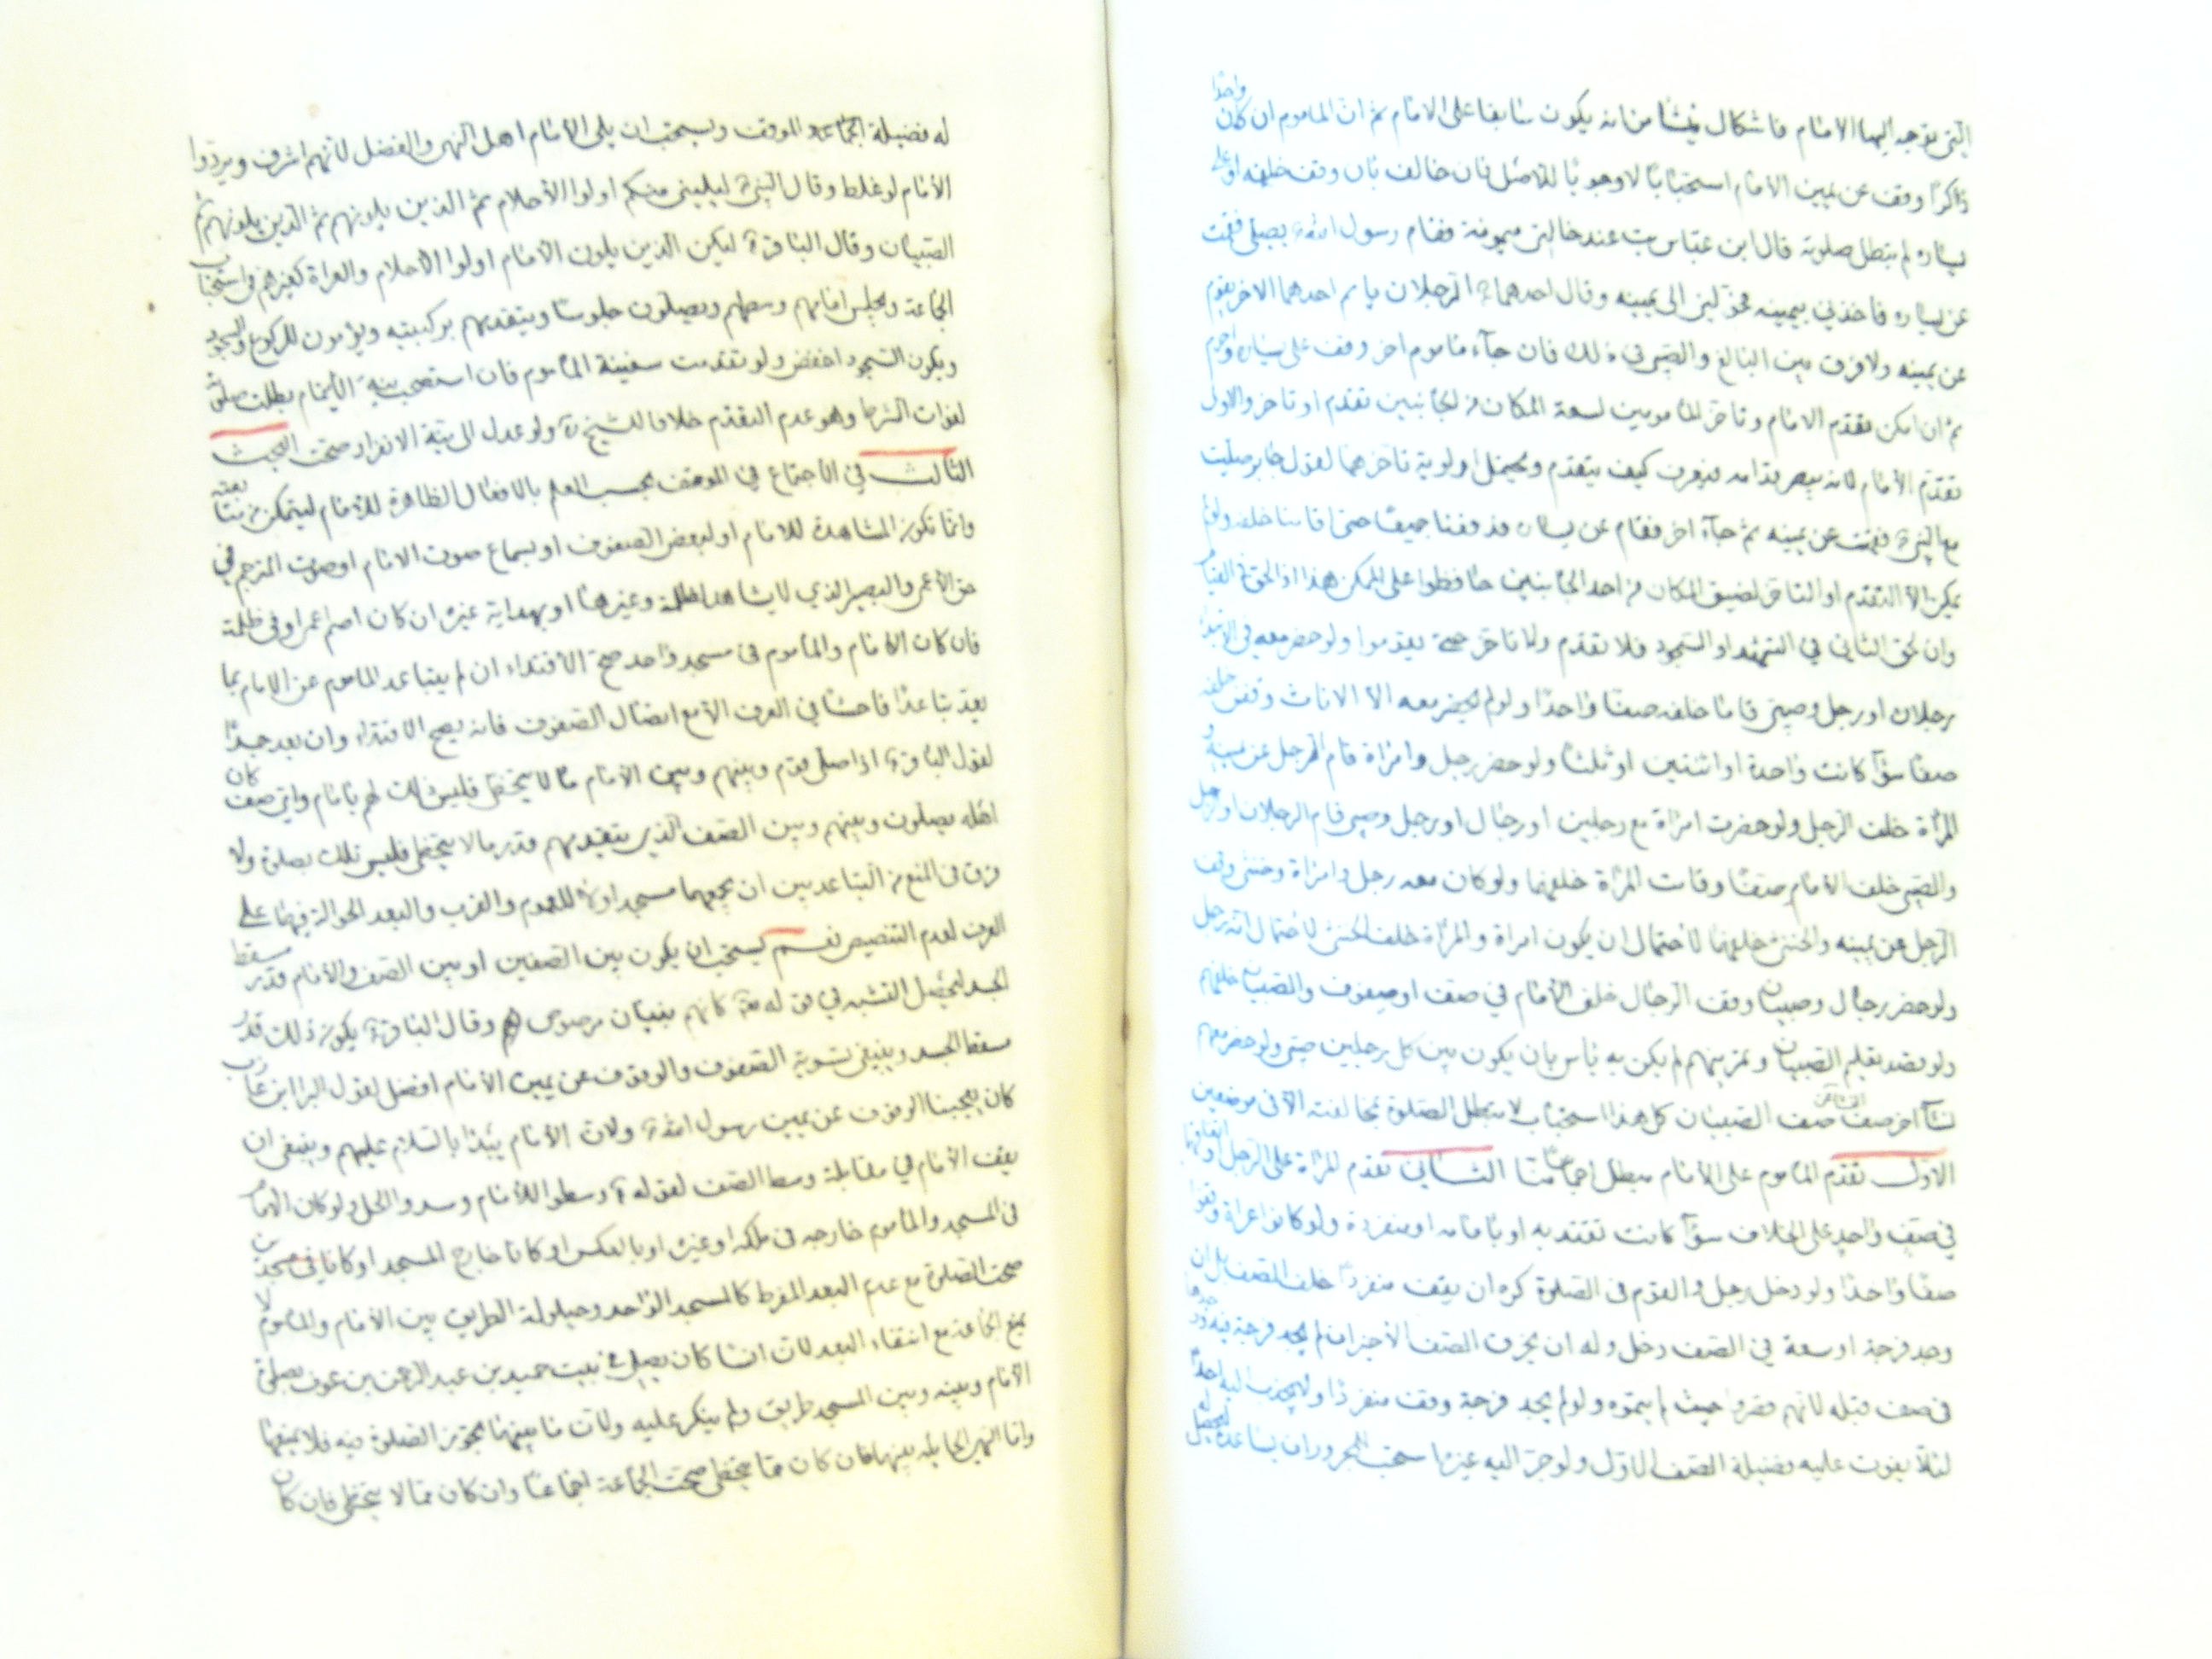 التي توجه اليها الامام فاشكال ينشا من انه يكون سابقا على الامام ثم ان الماموم ان كان واحدا
ذاكرا وقف عن يمين الامام استحبابا لا وجوبا للاصل فان خالف بان وقف خلفه او على
يساره لم تبطل صلوته قال ابن عباس بت عند خالتي ميمونة فقام رسول الله يصلي فقمت
عن يساره فاخذني بيمينه فحولني الى يمينه وقال احدهما الرجلان يام احدهما الاخر يقوم
عن يمينه ولا فرق بين البالغ والصبي في ذلك فان جاء ماموم اخر وقف على يساره واحرم
ثم ان امكن تقدم الامام وتاخر المامومين لسعة المكان من الجانبين تقدم او تاخر والاول
تقدم الامام لانه يبصر قدامه فيعرف كيف يتقدم ويحتمل اولوية تاخرهما لقول جابر صليت
مع النبي فقمت عن يمينه ثم جاء اخر فقام عن يساره فدفعنا جميعا حتى اقامنا خلفه ولو لم
يمكن الا التقدم او التاخر لضيق المكان من احد الجانبين حافظوا على الممكن هذا اذا لحق في القيام
وان لحق الثاني في التشهد او السجود فلا تقدم ولا تاخر حتى يقوموا ولو حضر معه في الابتداء
رجلان او رجل وصبي قاما خلفه صفا واحدا ولو لم يحضر معه الا الاناث وقفن خلفه
صفا سواء كانت واحدة او اثنتين او ثلثا ولو حضر رجل وامراة قام الرجل عن يمينه و
المراة خلف الرجل ولو حضرت امراة مع رجلين او رجال او رجل وصبي قام الرجلان او الرجل
والصبي خلف الامام صفا وقامت المراة خلفهما ولو كان معه رجل وامراة وخنثى وقف
الرجل عن يمينه والخنثى خلفهما لاحتمال ان يكون امراة والمراة خلف الخنثى لاحتمال انه رجل
ولو حضر رجال وصبيان وقف الرجال خلف الامام في صف او صفوف والصبيان خلفهم
ولو قصد تعليم الصبيان وتمرينهم لم يكن به باس بان يكون بين كل رجلين صبي ولو حضر معهم
نساء اخر صف النساء عن صف الصبيان كل هذا استحباب لا تبطل الصلوة بمخالفته الا في موضعين
الاول تقدم الماموم على الامام مبطل اجماعا منا الثاني تقدم المراة على الرجل او اتفاقهما
في صف واحد على الخلاف سواء كانت تقتدي به او بامامه او منفردة ولو كانوا عراة وقفوا
صفا واحدا ولو دخل رجل والقوم في الصلوة كره ان يقف منفردا خلف الصف بل ان
وجد فرجة او سعة في الصف دخل وله ان يخرق الصف الاخير ان لم يجد فرجة فيه ووجدها
في صف قبله لانهم قصروا حيث لم يتموه ولو لم يجد فرجة وقف منفردا ولا يجذب اليه احدا
لئلا يفوت عليه فضيلة الصف الاول ولو جر اليه غيره استحب للمجرور ان يساعده ليحصل له
له فضيلة الجماعة والموقف ويستحب ان يلي الامام اهل النهى والفضل لانهم اشرف ويردوا
الامام لو غلط وقال النبي ليليني منكم اولوا الاحلام ثم الذين يلونهم ثم الذين يلونهم ثم
الصبيان وقال الباقر ليكن الذين يلون الامام اولوا الاحلام والعراة كغيرهم في استحباب
الجماعة ويجلس امامهم وسطهم ويصلون جلوسا ويتقدمهم بركبتيه ويؤمون للركوع والسجود
ويكون السجود اخفض ولو تقدمت سفينة الماموم فان استصحب نية الايتمام بطلت صلوته
لفوات الشرط وهو عدم التقدم خلافا للشيخ ولو عدل الى نية الانفراد صحت البحث
الثالث في الاجتماع في الموقف يجب العلم بالافعال الظاهرة للامام ليتمكن من متابعته
وانما تكون المشاهدة للامام او لبعض الصفوف او بسماع صوت الامام او صوت المترجم في
حق الاعمى والبصير الذي لا يشاهد لظلمة وغيرها او بهداية غيره ان كان اصم اعمى او في ظلمة
فان كان الامام والماموم في مسجد واحد صح الاقتداء ان لم يتباعد الماموم عن الامام بما
يعد تباعدا فاحشا في العرف الا مع اتصال الصفوف فانه يصح الاقتداء وان بعد جدا
لقول الباقر اذا صلى قوم وبينهم وبين الامام ما لا يتخطى فليس ذلك لهم بامام واي صف كان
اهله يصلون وبينهم وبين الصف الذي يتقدمهم قدر ما لا يتخطى فليس تلك بصلوة ولا
فرق في المنع من التباعد بين ان يجمعهما مسجد اولا للعموم والقرب والبعد الحوالة فيهما على
العرف لعدم التنصيص نعم يستحب ان يكون بين الصفين او بين الصف والامام قدر مسقط
الجسد ليحصل التشبه في قوله كانهم بنيان مرصوص وقال الباقر يكون ذلك قدر
مسقط الجسد وينبغي تسوية الصفوف والوقوف عن يمين الامام افضل لقول البرا ابن عازب
كان يعجبنا الوقوف عن يمين رسول الله ولان الامام يبدا بالسلام عليهم وينبغي ان
يقف الامام في مقابلة وسط الصف لقوله وسطوا للامام وسدوا الخلل ولو كان الامام
في المسجد والماموم خارجه في ملكه او غيره او بالعكس او كانا خارج المسجد او كانا في مسجدين
صحت الصلوة مع عدم البعد المفرط كالمسجد الواحد وحيلولة الطريق بين الامام والماموم لا
يمنع الجماعة مع انتفاء البعد لان انسا كان يصلي في بيت حميد بن عبد الرحمن بن عوف بصلوة
الامام وبينه وبين المسجد طريق ولم ينكر عليه ولان ما بينهما يجوز الصلوة فيه فلا يمنعها
واما النهر الحايل بينهما فان كان مما يتخطى صحت الجماعة اجماعا وان كان مما لا يتخطى فان كان